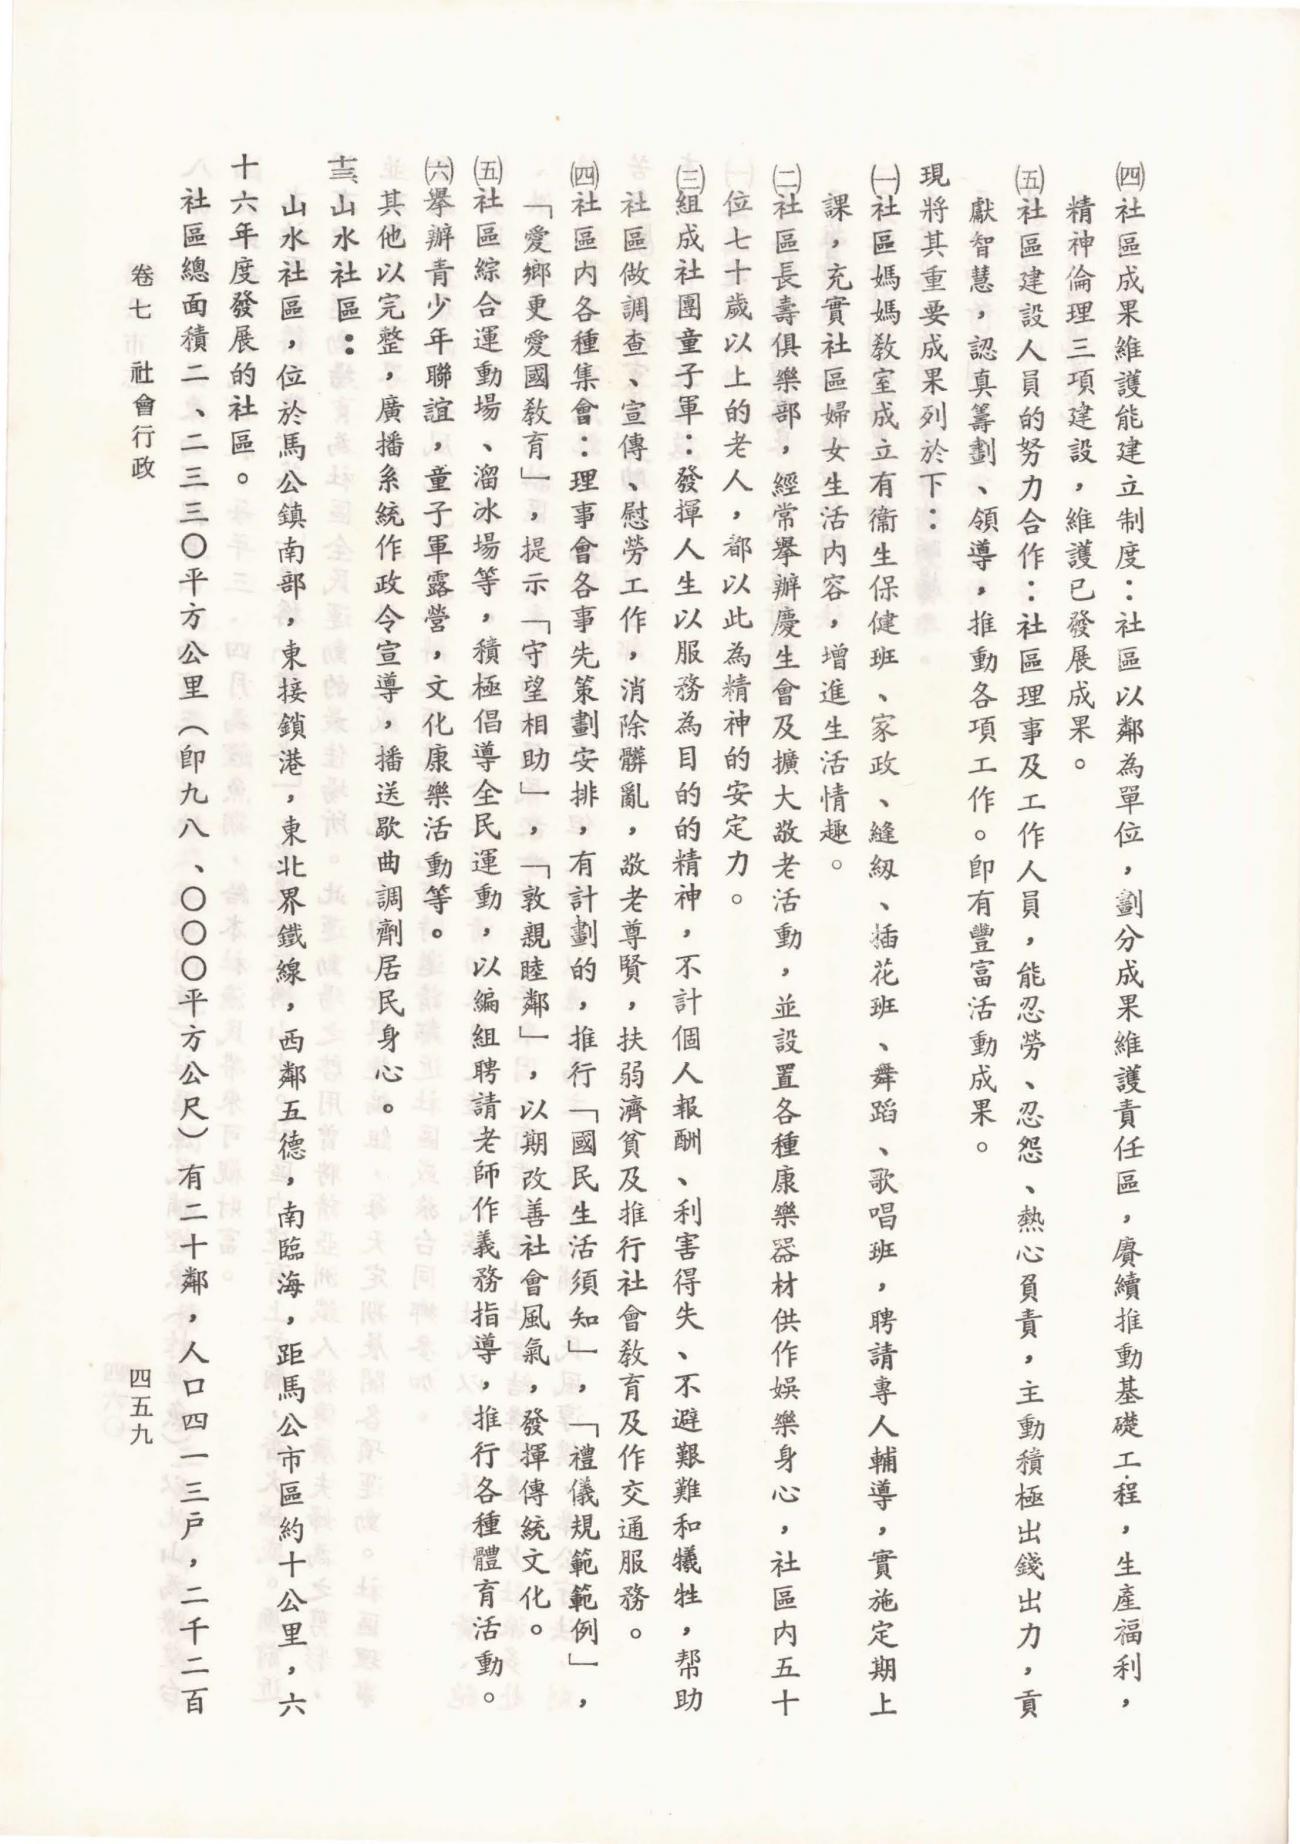 ㈣社區成果維護能建立制度：社區以鄰為單位，劃分成果維護責任區，賡續推動基礎工程，生產福利，
精神倫理三項建設，維護已發展成果。
㈤社區建設人員的努力合作：社區理事及工作人員，能忍勞、忍怨、熱心負責，主動積極出錢出力，貢
獻智慧，認真籌劃、領導，推動各項工作。卽有豐富活動成果。
現將其重要成果列於下：
㈠社區媽媽教室成立有衞生保健班、家政、縫紉、插花班、舞蹈、歌唱班，聘請專人輔導，實施定期上
課，充實社區婦女生活內容，增進生活情趣。
㈡社區長壽俱樂部，經常舉辦慶生會及擴大敬老活動，並設置各種康樂器材供作娛樂身心，社區內五十
位七十歲以上的老人，都以此為精神的安定力。
㈢組成社團童子軍：發揮人生以服務為目的的精神，不計個人報酬、利害得失、不避艱難和犧牲，幫助
社區做調查、宣傳、慰勞工作，消除髒亂，敬老尊賢，扶弱濟貧及推行社會教育及作交通服務。
㈣社區內各種集會：理事會各事先策劃安排，有計劃的，推行「國民生活須知」，「禮儀規範範例」，
「愛鄉更愛國教育」，提示「守望相助」，「敦親睦鄰」，以期改善社會風氣，發揮傳統文化。
㈤社區綜合運動場、溜冰場等，積極倡導全民運動，以編組聘請老師作義務指導，推行各種體育活動。
㈥擧辦青少年聯誼，童子軍露營，文化康樂活動等。
其他以完整，廣播系統作政令宣導，播送歌曲調劑居民身心。
十三、山水社區：
山水社區，位於馬公鎮南部，東接鎖港，東北界鐵線，西鄰五德，南臨海，距馬公市區約十公里，六
十六年度發展的社區。
社區總面積二、二三三〇平方公里（卽九八、〇〇〇平方公尺）有二十鄰，人口四一三戶，二千二百
卷七 社會行政
四五九